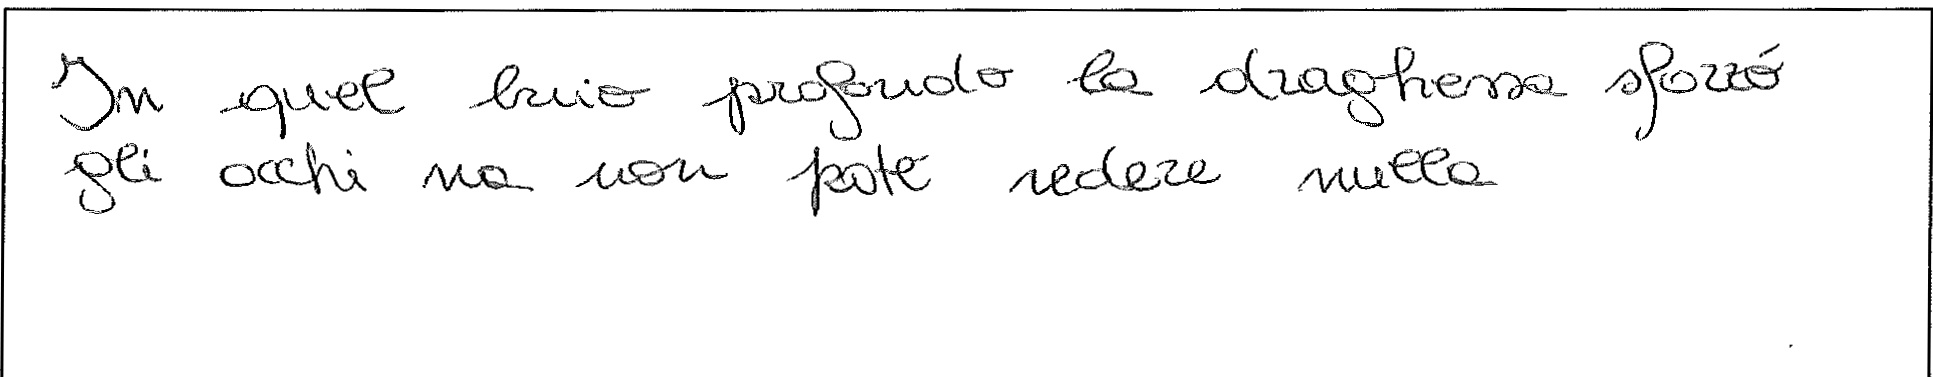 In quel buio profondo la draghessa sforzó
gli occhi ma non pote vedere nulla